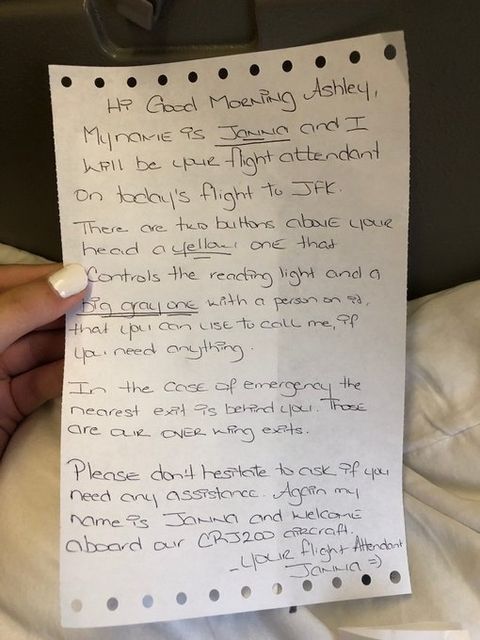 Hi Good Morning Ashley,
My name is Janna and I
will be your flight attendant
on today's flight to JFK.
There are two buttons above your
head a yellow one that
Controls the reading light and a
big gray one with a person on it,
that you can use to call me, if
you need anything.
In the case of emergency the
nearest exit is behind you. Those
are our over wing exits.
Please don't hesitate to ask if you
need any assistance. Again my
name is Janna and welcome
aboard our CRJ200 aircraft.
- your flight Attendant
Janna =)